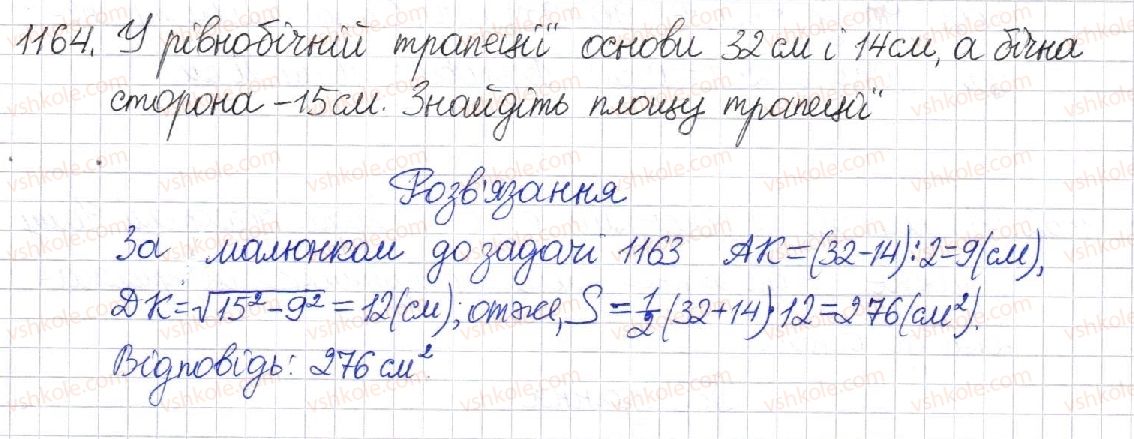 1164. У рівнобічній трапеції основи 32 см і 14 см, а бічна
сторона - 15 см. Знайдіть площу трапеції
Розв'язання
За малюнком до задачі 1163 AK = (32-14):2 = 9(см),
DK = √15² - 9² = 12(см); отже, S = 1/2 (32+14)·12 = 276(см²).
Відповідь: 276 см².